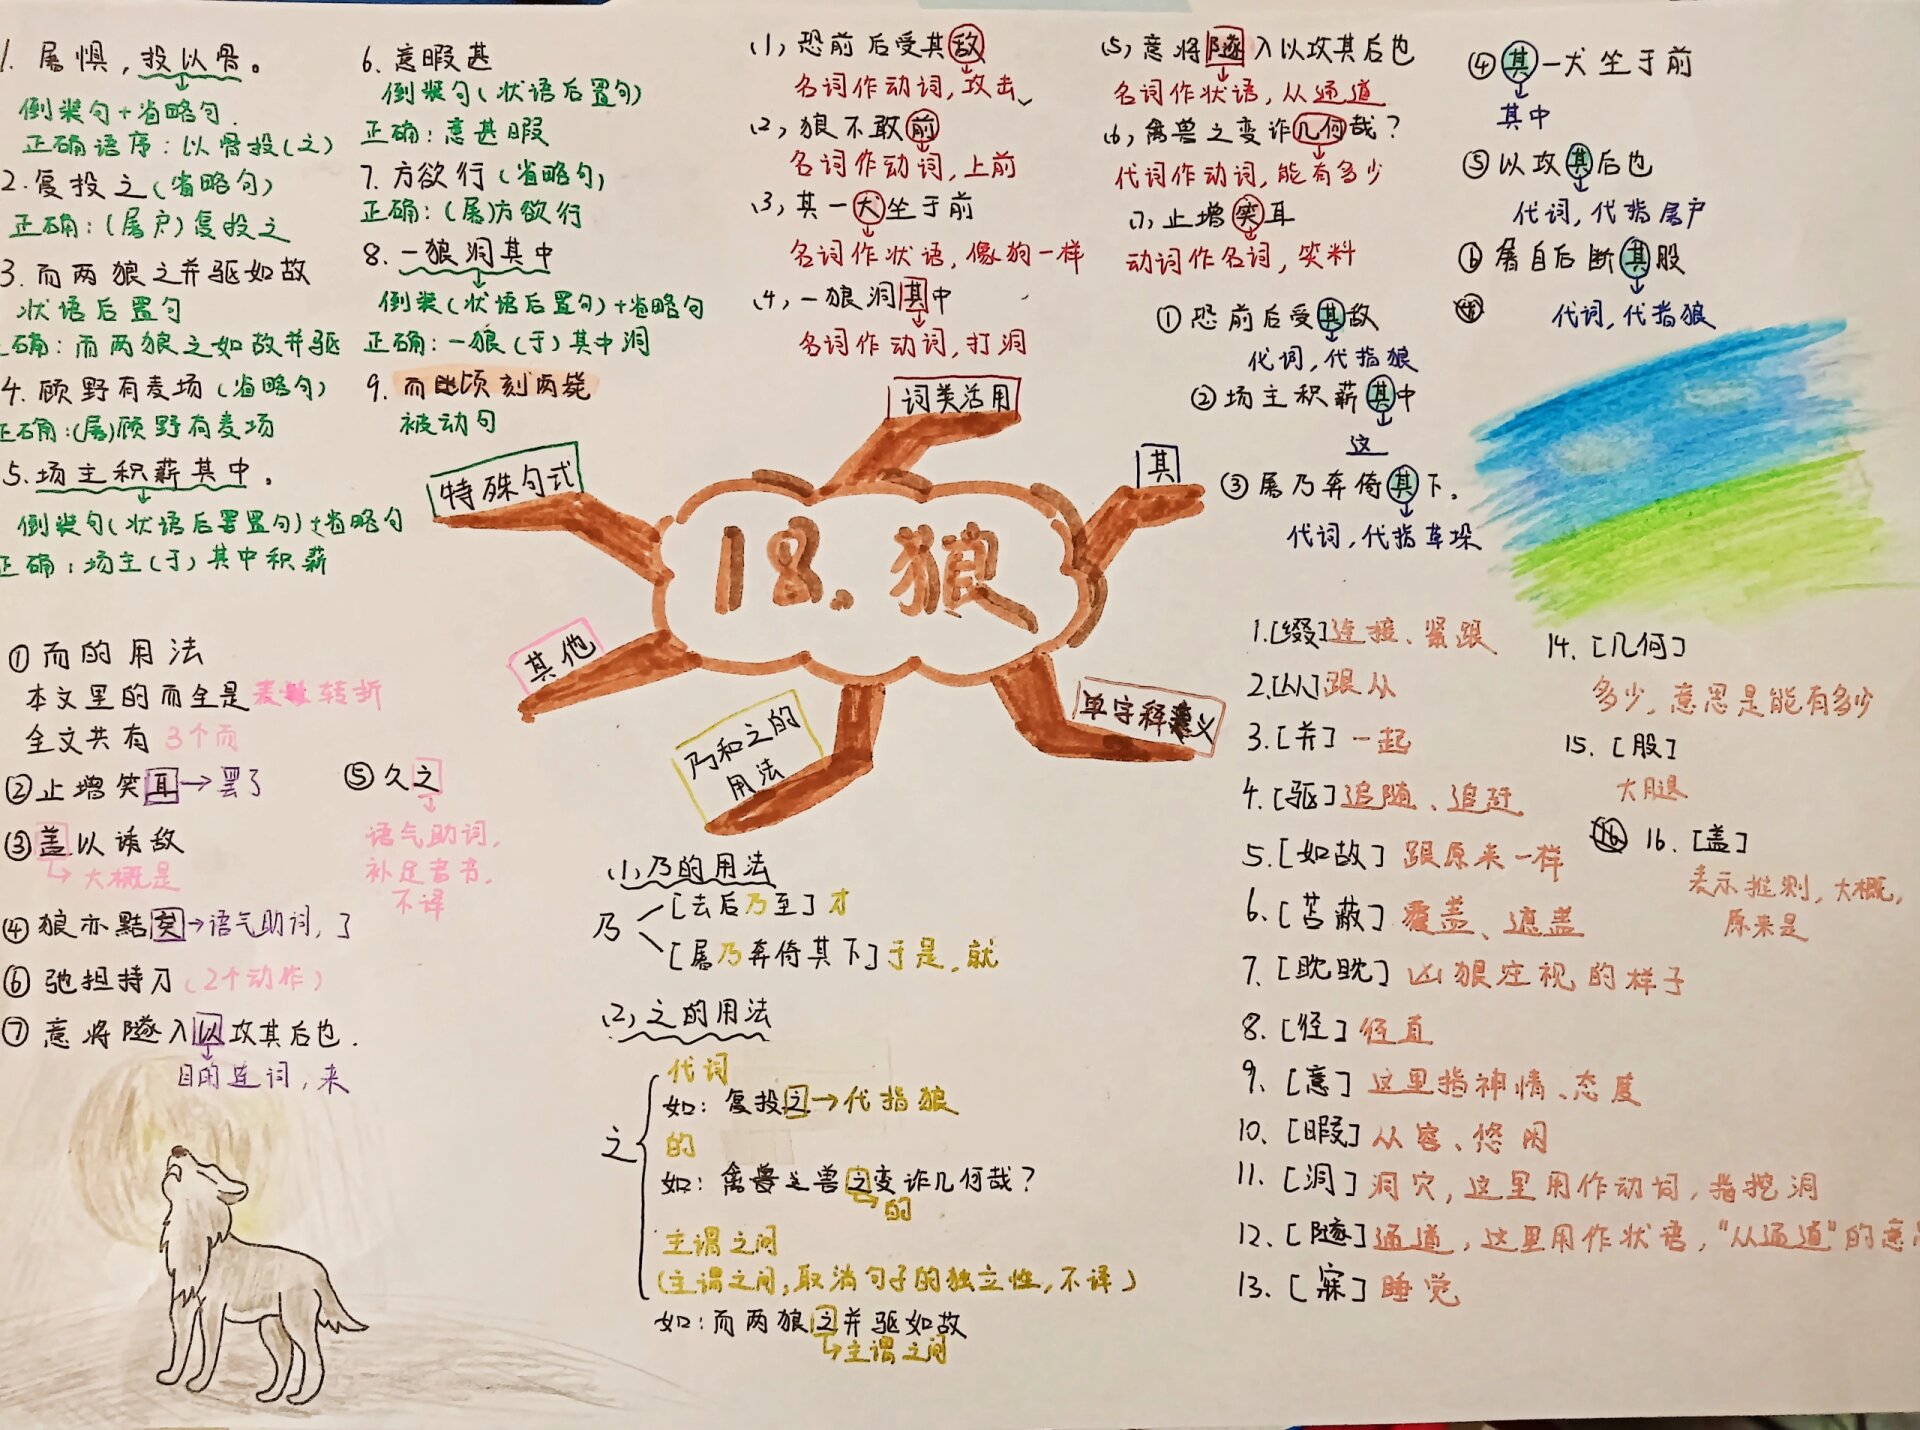 1. 屠惧，投以骨。
倒装句+省略句.
正确语序：以骨投(之)
2. 复投之(省略句)
正确：(屠户)复投之
3. 而两狼之并驱如故
状语后置句
正确：而两狼之如故并驱
4. 顾野有麦场(省略句)
正确:(屠)顾野有麦场
5. 场主积薪其中。
倒装句(状语后置句)+省略句
正确：场主(于)其中积薪
6. 意暇甚
倒装句(状语后置句)
正确：意甚暇
7. 方欲行(省略句)
正确：(屠)方欲行
8. 一狼洞其中
倒装(状语后置句)+省略句
正确：一狼(于)其中洞
9. 而顷刻两毙
被动句
特殊句式
(1) 恐前后受其敌
名词作动词，攻击
(2) 狼不敢前
名词作动词，上前
(3) 其一犬坐于前
名词作状语，像狗一样
(4) 一狼洞其中
名词作动词，打洞
(5) 意将隧入以攻其后也
名词作状语，从通道
(6) 禽兽之变诈几何哉？
代词作动词，能有多少
(7) 止增笑耳
动词作名词，笑料
词类活用
① 恐前后受其敌
代词，代指狼
② 场主积薪其中
这
③ 屠乃奔倚其下.
代词，代指草垛
④ 其一犬坐于前
其中
⑤ 以攻其后也
代词，代指屠户
⑥ 屠自后断其股
代词，代指狼
其
18.狼
其他
① 而的用法
本文里的而全是表转折
全文共有3个而
② 止增笑耳→罢了
③ 盖以诱敌
大概是
④ 狼亦黠矣→语气助词，了
⑤ 久之
语气助词，
补足音节，
不译
⑥ 弛担持刀(2个动作)
⑦ 意将隧入以攻其后也.
目的连词，来
乃和之的
用法
(1) 乃的用法
乃
[去后乃至]才
[屠乃奔倚其下]于是，就
(2) 之的用法
之
代词
如：复投之→代指狼
的
如：禽兽之变诈几何哉？
的
主谓之间
(主谓之间，取消句子的独立性，不译)
如：而两狼之并驱如故
主谓之间
单字释义
1.[缀]连接、紧跟
2.[从]跟从
3.[并]一起
4.[驱]追随、追赶
5.[如故]跟原来一样
6.[苫蔽]覆盖、遮盖
7.[眈眈]凶狠注视的样子
8.[径]径直
9.[意]这里指神情、态度
10.[暇]从容、悠闲
11.[洞]洞穴，这里用作动词，指挖洞
12.[隧]通道，这里用作状语，“从通道”的意
13.[寐]睡觉
14.[几何]
多少，意思是能有多少
15.[股]
大腿
16.[盖]
表示推测，大概，
原来是